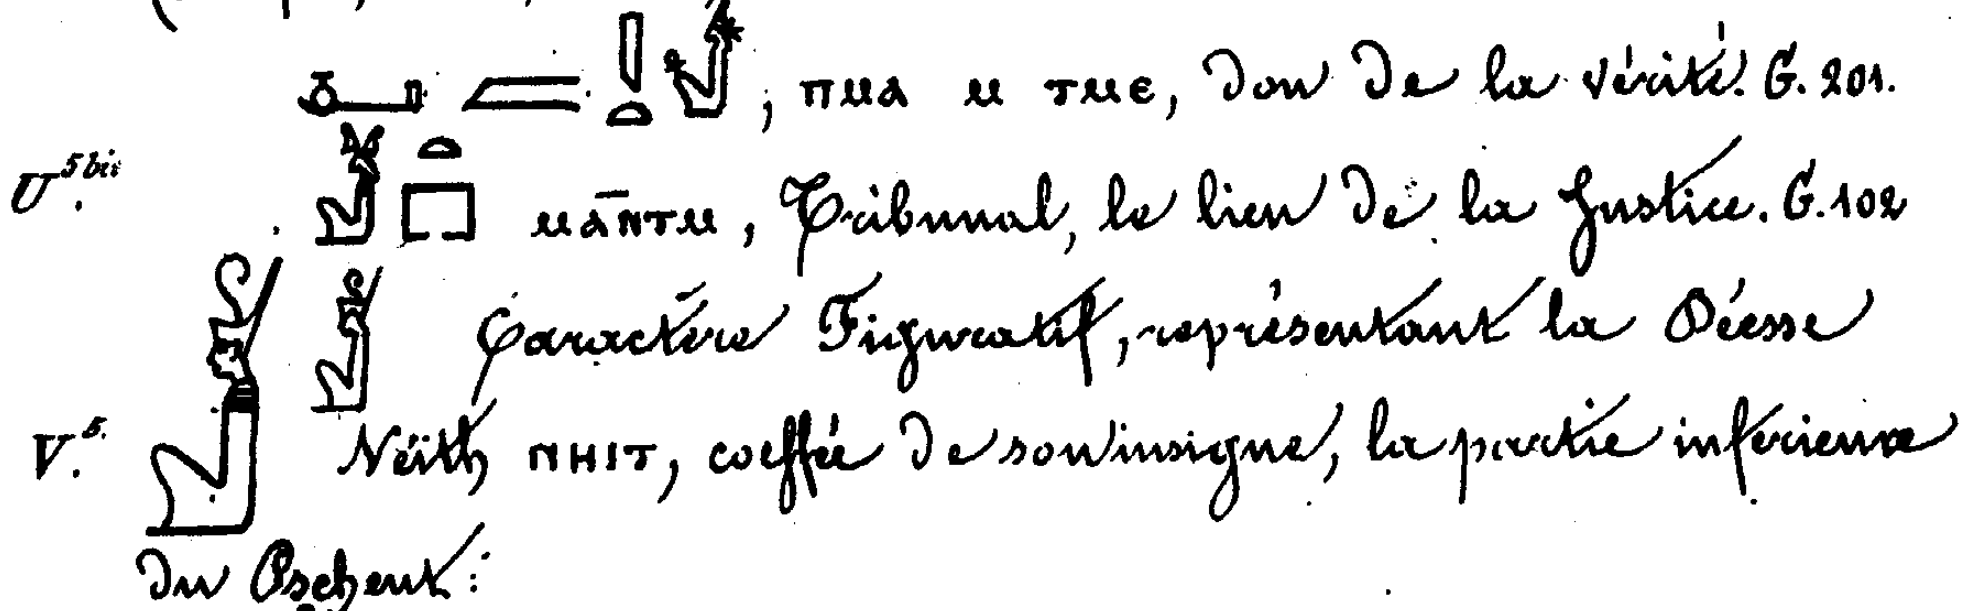 , ⲡⲙⲁ ⲙ ⲧⲙⲉ, don de la vérité. G. 201.
U.⁵ ᵇⁱˢ ⲙⲁⲛ̄ⲧⲙ, Tribunal, le lieu de la Justice. G. 102
Caractère Figuratif, représentant la Déesse
V.⁵· Néith ⲛⲏⲓⲧ, coeffée de son insigne, la partie inférieure
du Pschent :